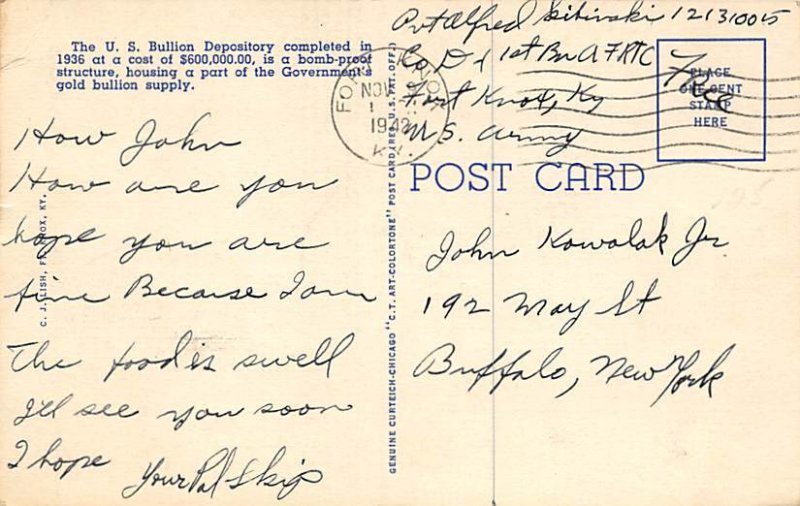 The U. S. Bullion Depository completed in
1936 at a cost of $600,000.00, is a bomb-proof
structure, housing a part of the Government's
gold bullion supply.
How John
How are you
hope you are
fine Because I am
The food is swell
I'll see you soon
I hope
Your Pal Skip
C. J. FT. KNOX, KY.
GENUINE CURTEICH-CHICAGO "C. T. ART-COLORTONE" POST CARD (REG. U.S. PAT. OFF.)
Pvt Alfred 12131005
Co D 1st Bn A F RTC
Fort Knox, Ky
U.S. Army
FORT KNOX
NOV
1942
KY.
Free
PLACE
ONE CENT
STAMP
HERE
POST CARD
John Kowalak Jr
192 May St
Buffalo, New York